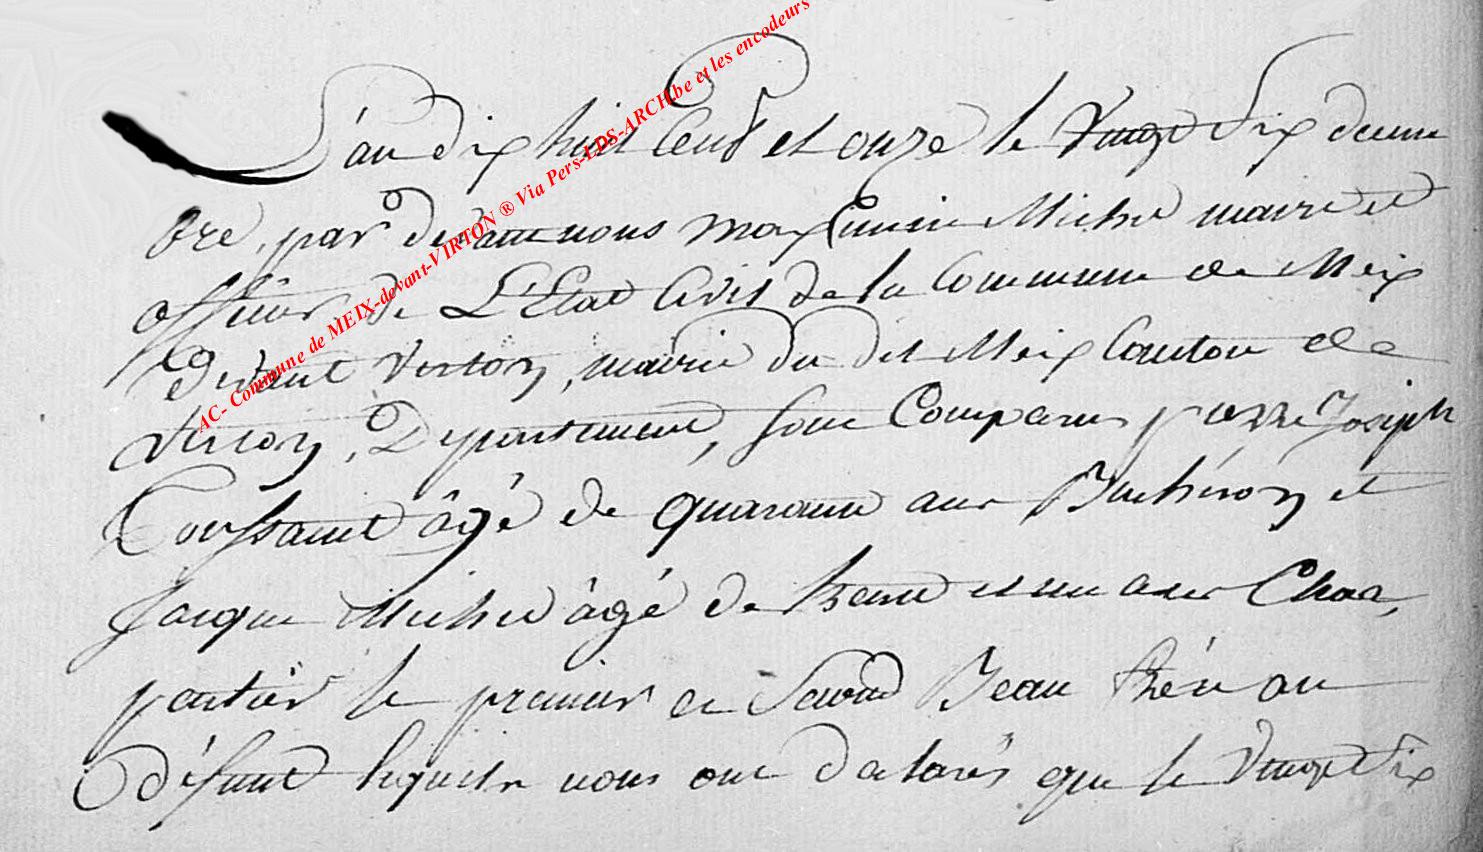 L'an dix huit Cent et onze le Vingt Six decem
bre, par devant nous maximin Michel maire et
officier de L'Etat Civil de la Commune de Meix
devant Virton, mairie du dit Meix Canton de
Virton, Departement, sont Comparus pierre Joseph
Toussaint âgé de quarante ans Bucheron et
Jacque Michel âgé de trente et un ans Char,
pentier le premier et Second Beau frére au
défunt lesquels nous ont declarés que le Vingt Six
AC- Commune de MEIX-devant-VIRTON ® Via Pers-LDS-ARCH.be et les encodeurs